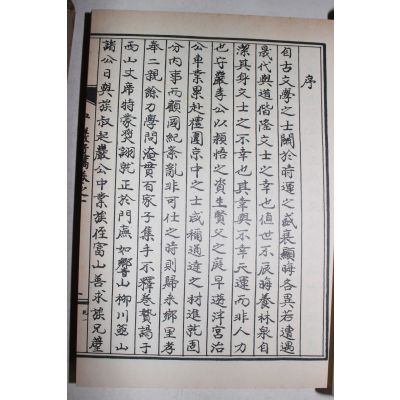 序
自古文學之士關於時運之盛衰顯晦各異若遭遇
晟代與道偕隆文士之幸也値世不辰晦養林泉自
潔其身文士之不幸也其幸與不幸天運而非人力
也守巖李公以穎悟之資生賢父之庭早遊泮宮治
公車業累赴禮圍京中之士咸稱通達之材進就固
分內事而顧國紀紊亂非可仕之時則歸來鄕里孝
奉二親餘力學問淹貫百家子集手不釋卷贄謁于
西山丈席特蒙奬詡就正於門廡如響山柳川
諸公日與族叔起巖公中業族侄富山善求族兄